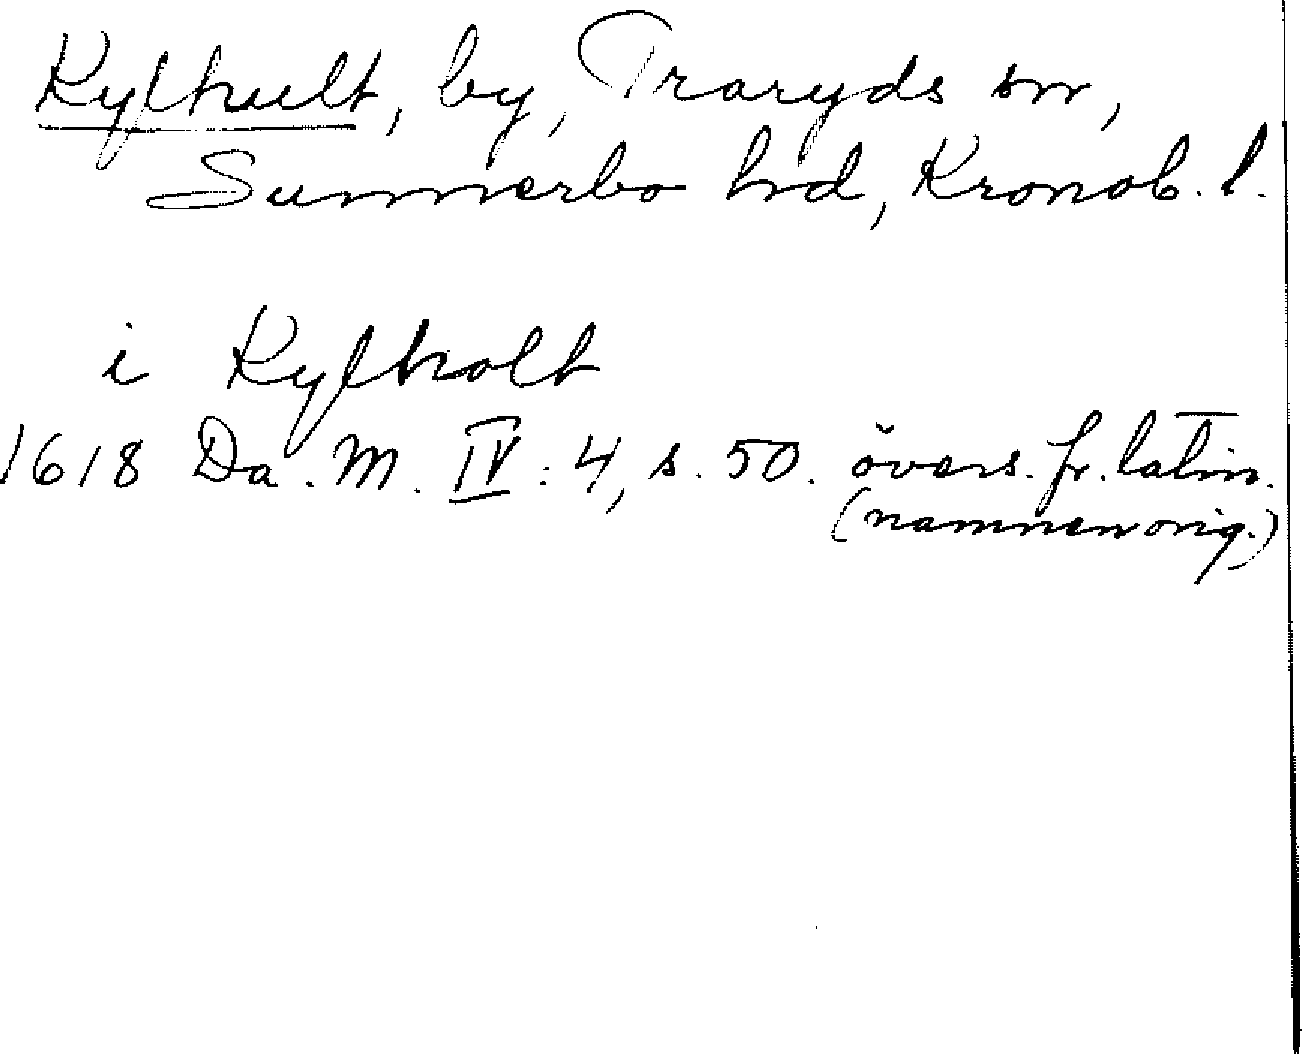 Kylhult, by, Traryds sn,
Sunnerbo hd, Kronob. l.
i Kylholt
1618 Da. M. IV: 4, s. 50. övers. fr. latin.
(namnen orig.)